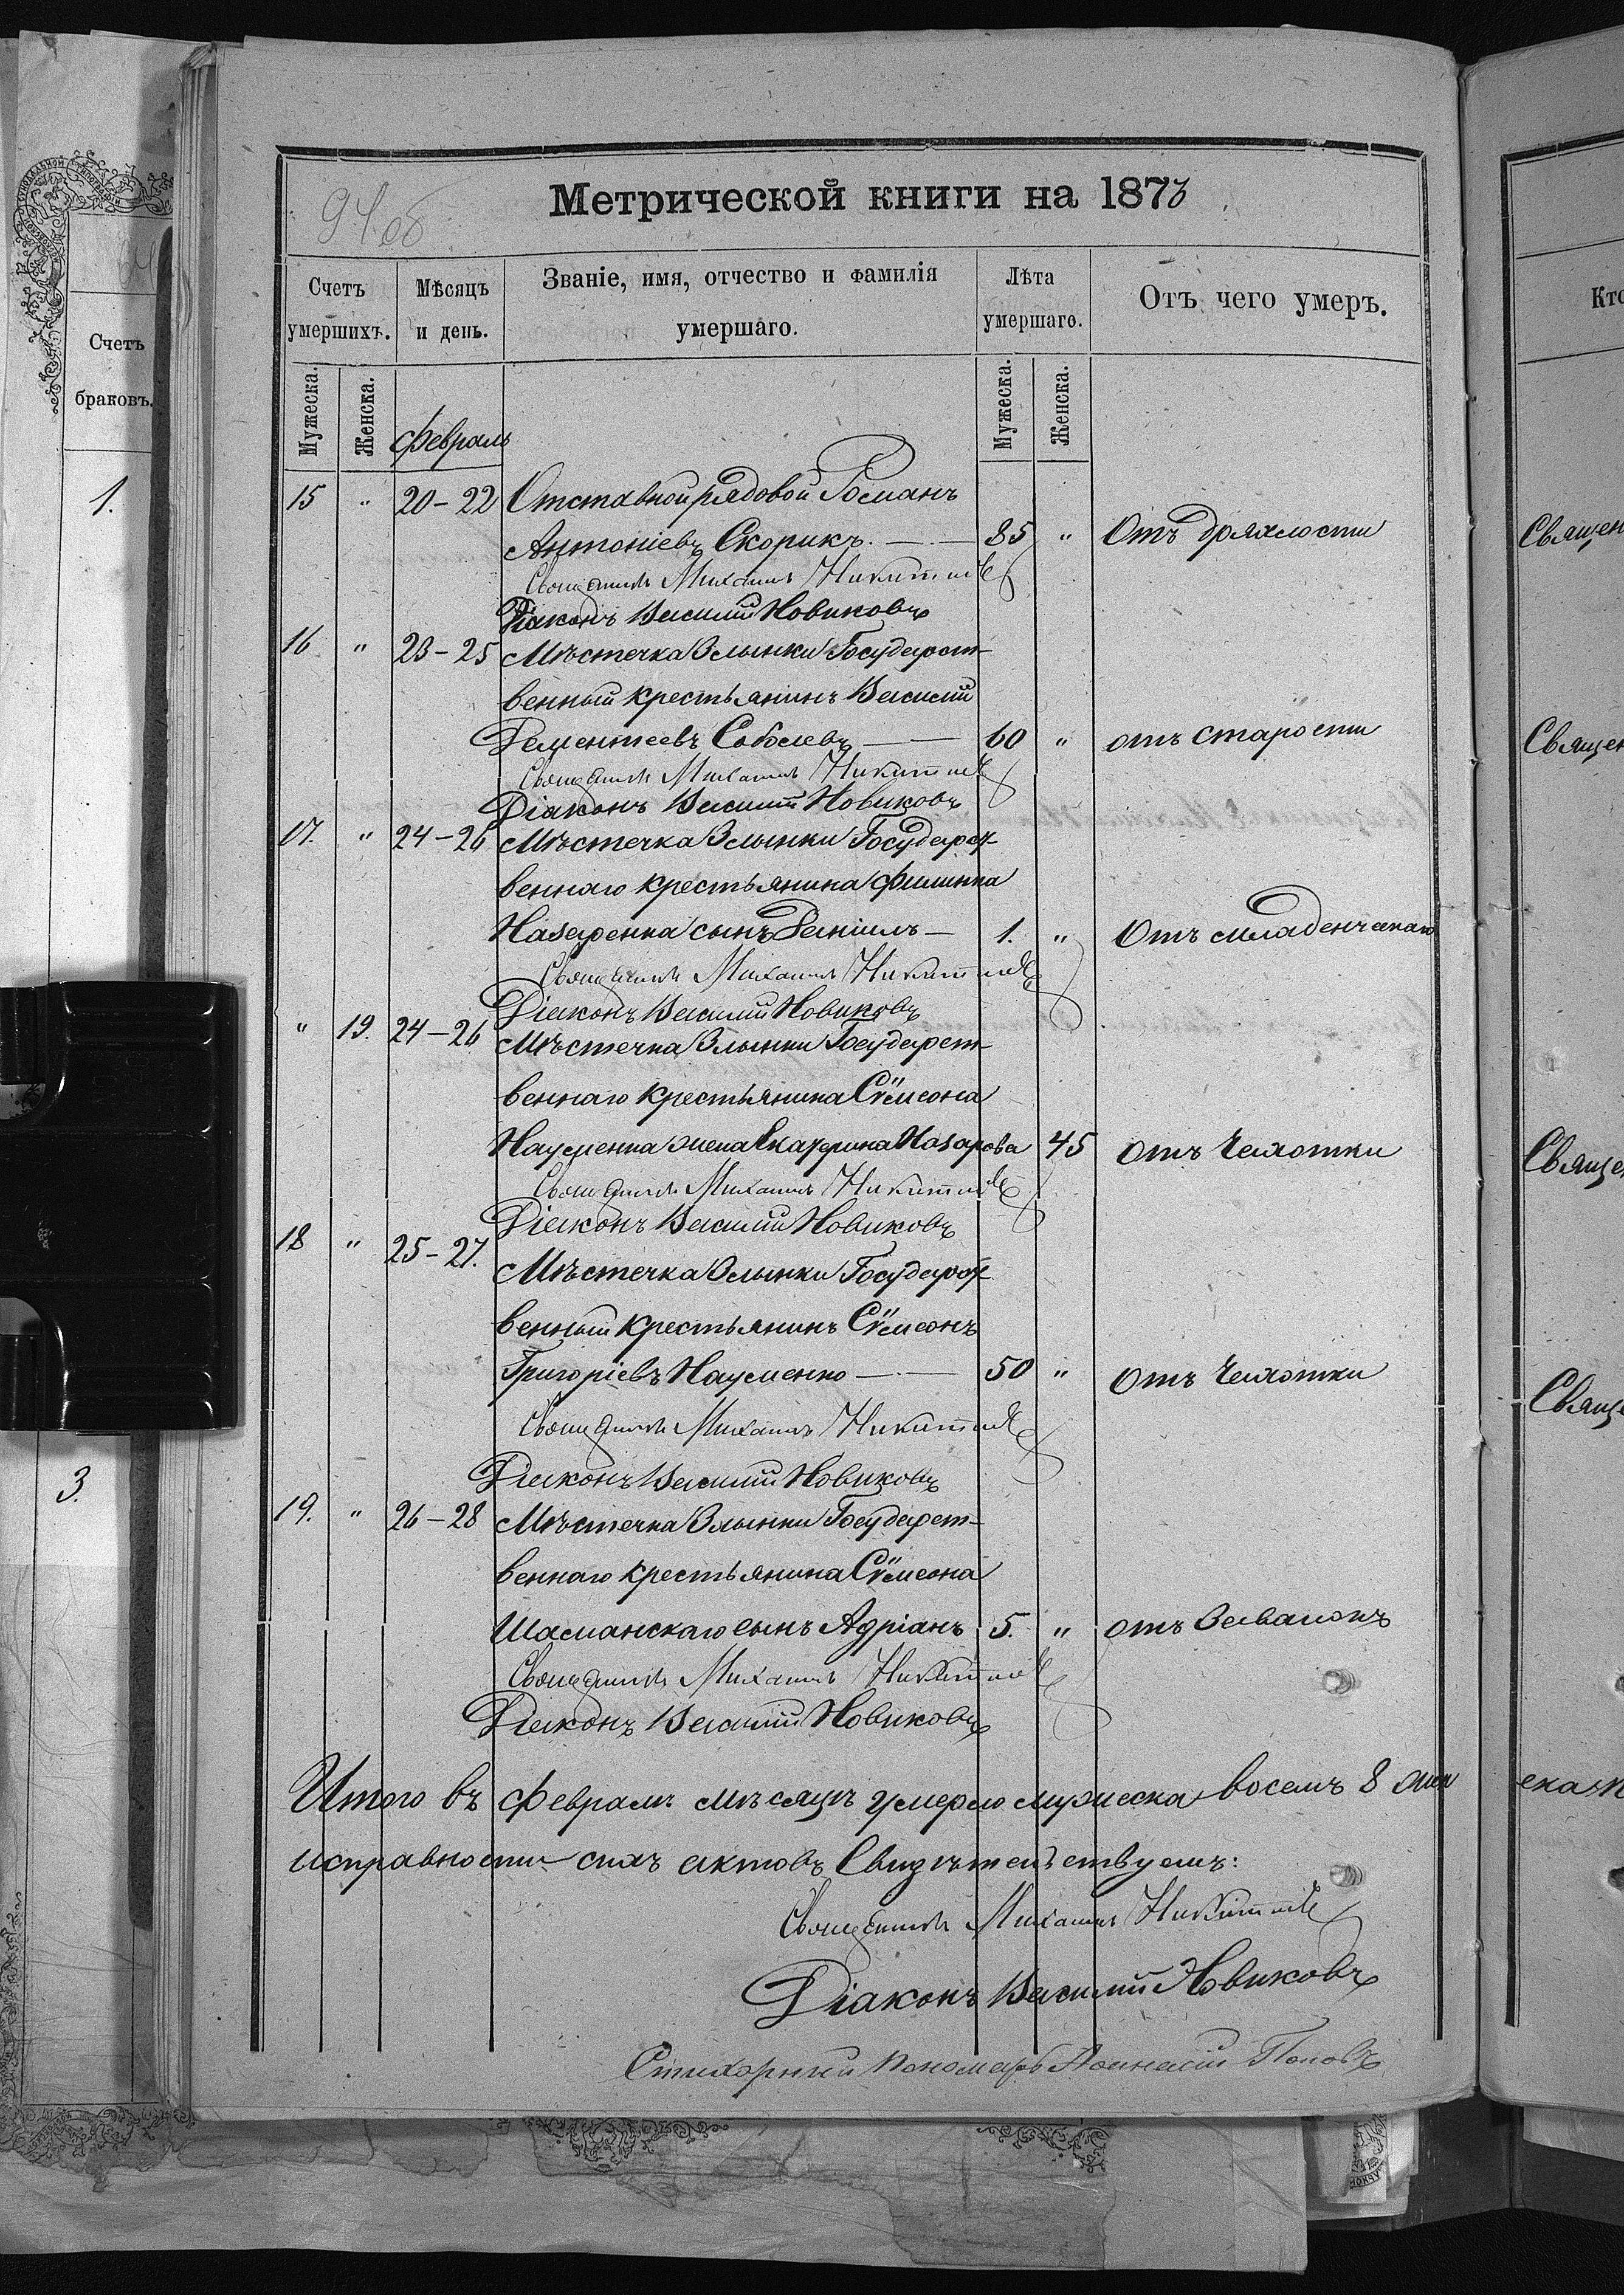 94 об
Метрической книги на 1873
Счетъ умершихъ.
Мѣсяцъ и день.
Званіе, имя, отчество и фамилія умершаго.
Лѣта умершаго.
Отъ чего умеръ.
Мужеска. Женска. Февраль Мужеска. Женска.
15 " 20-22 Отставной рядовой Романъ
Антоніевъ Скорикъ. — 85 " Отъ дряхлости
Священникъ Михаилъ Никитинъ
Діаконъ Василій Новиковъ
16 " 23-25 Мѣстечка Злынки Государст-
венный крестьянинъ Василій
Дементеевъ Соболевъ — 60 " отъ старости
Священникъ Михаилъ Никитинъ
Діаконъ Василій Новиковъ
17. " 24-26 Мѣстечка Злынки Государст-
веннаго крестьянина Филиппа
Назаренка сынъ Даніилъ — 1. " Отъ младенческаго
Священникъ Михаилъ Никитинъ
Діаконъ Василій Новиковъ
" 19. 24-26 Мѣстечка Злынки Государст-
веннаго крестьянина Сѵмеона
Науменка жена Екатерина Назарова 45 отъ Чахотки
Священникъ Михаилъ Никитинъ
Діаконъ Василій Новиковъ
18 " 25-27. Мѣстечка Злынки Государст-
венный крестьянинъ Сѵмеонъ
Григоріевъ Науменко — 50 " отъ Чахотки
Священникъ Михаилъ Никитинъ
Діаконъ Василій Новиковъ
19. " 26-28 Мѣстечка Злынки Государст-
веннаго крестьянина Сѵмеона
Шаманскаго сынъ Адріанъ 5. " отъ
Священникъ Михаилъ Никитинъ
Діаконъ Василій Новиковъ
Итого въ Февралѣ мѣсяцѣ умерло мужеска восемъ 8 жен
исправности сихъ актовъ Свидѣтельствуемъ:
Священникъ Михаилъ Никитинъ
Діаконъ Василій Новиковъ
Стихарный Пономарь Аѳанасій Поповъ
Счетъ браковъ.
1.
3.
Кто
Священ
Священ
Священ
Священ